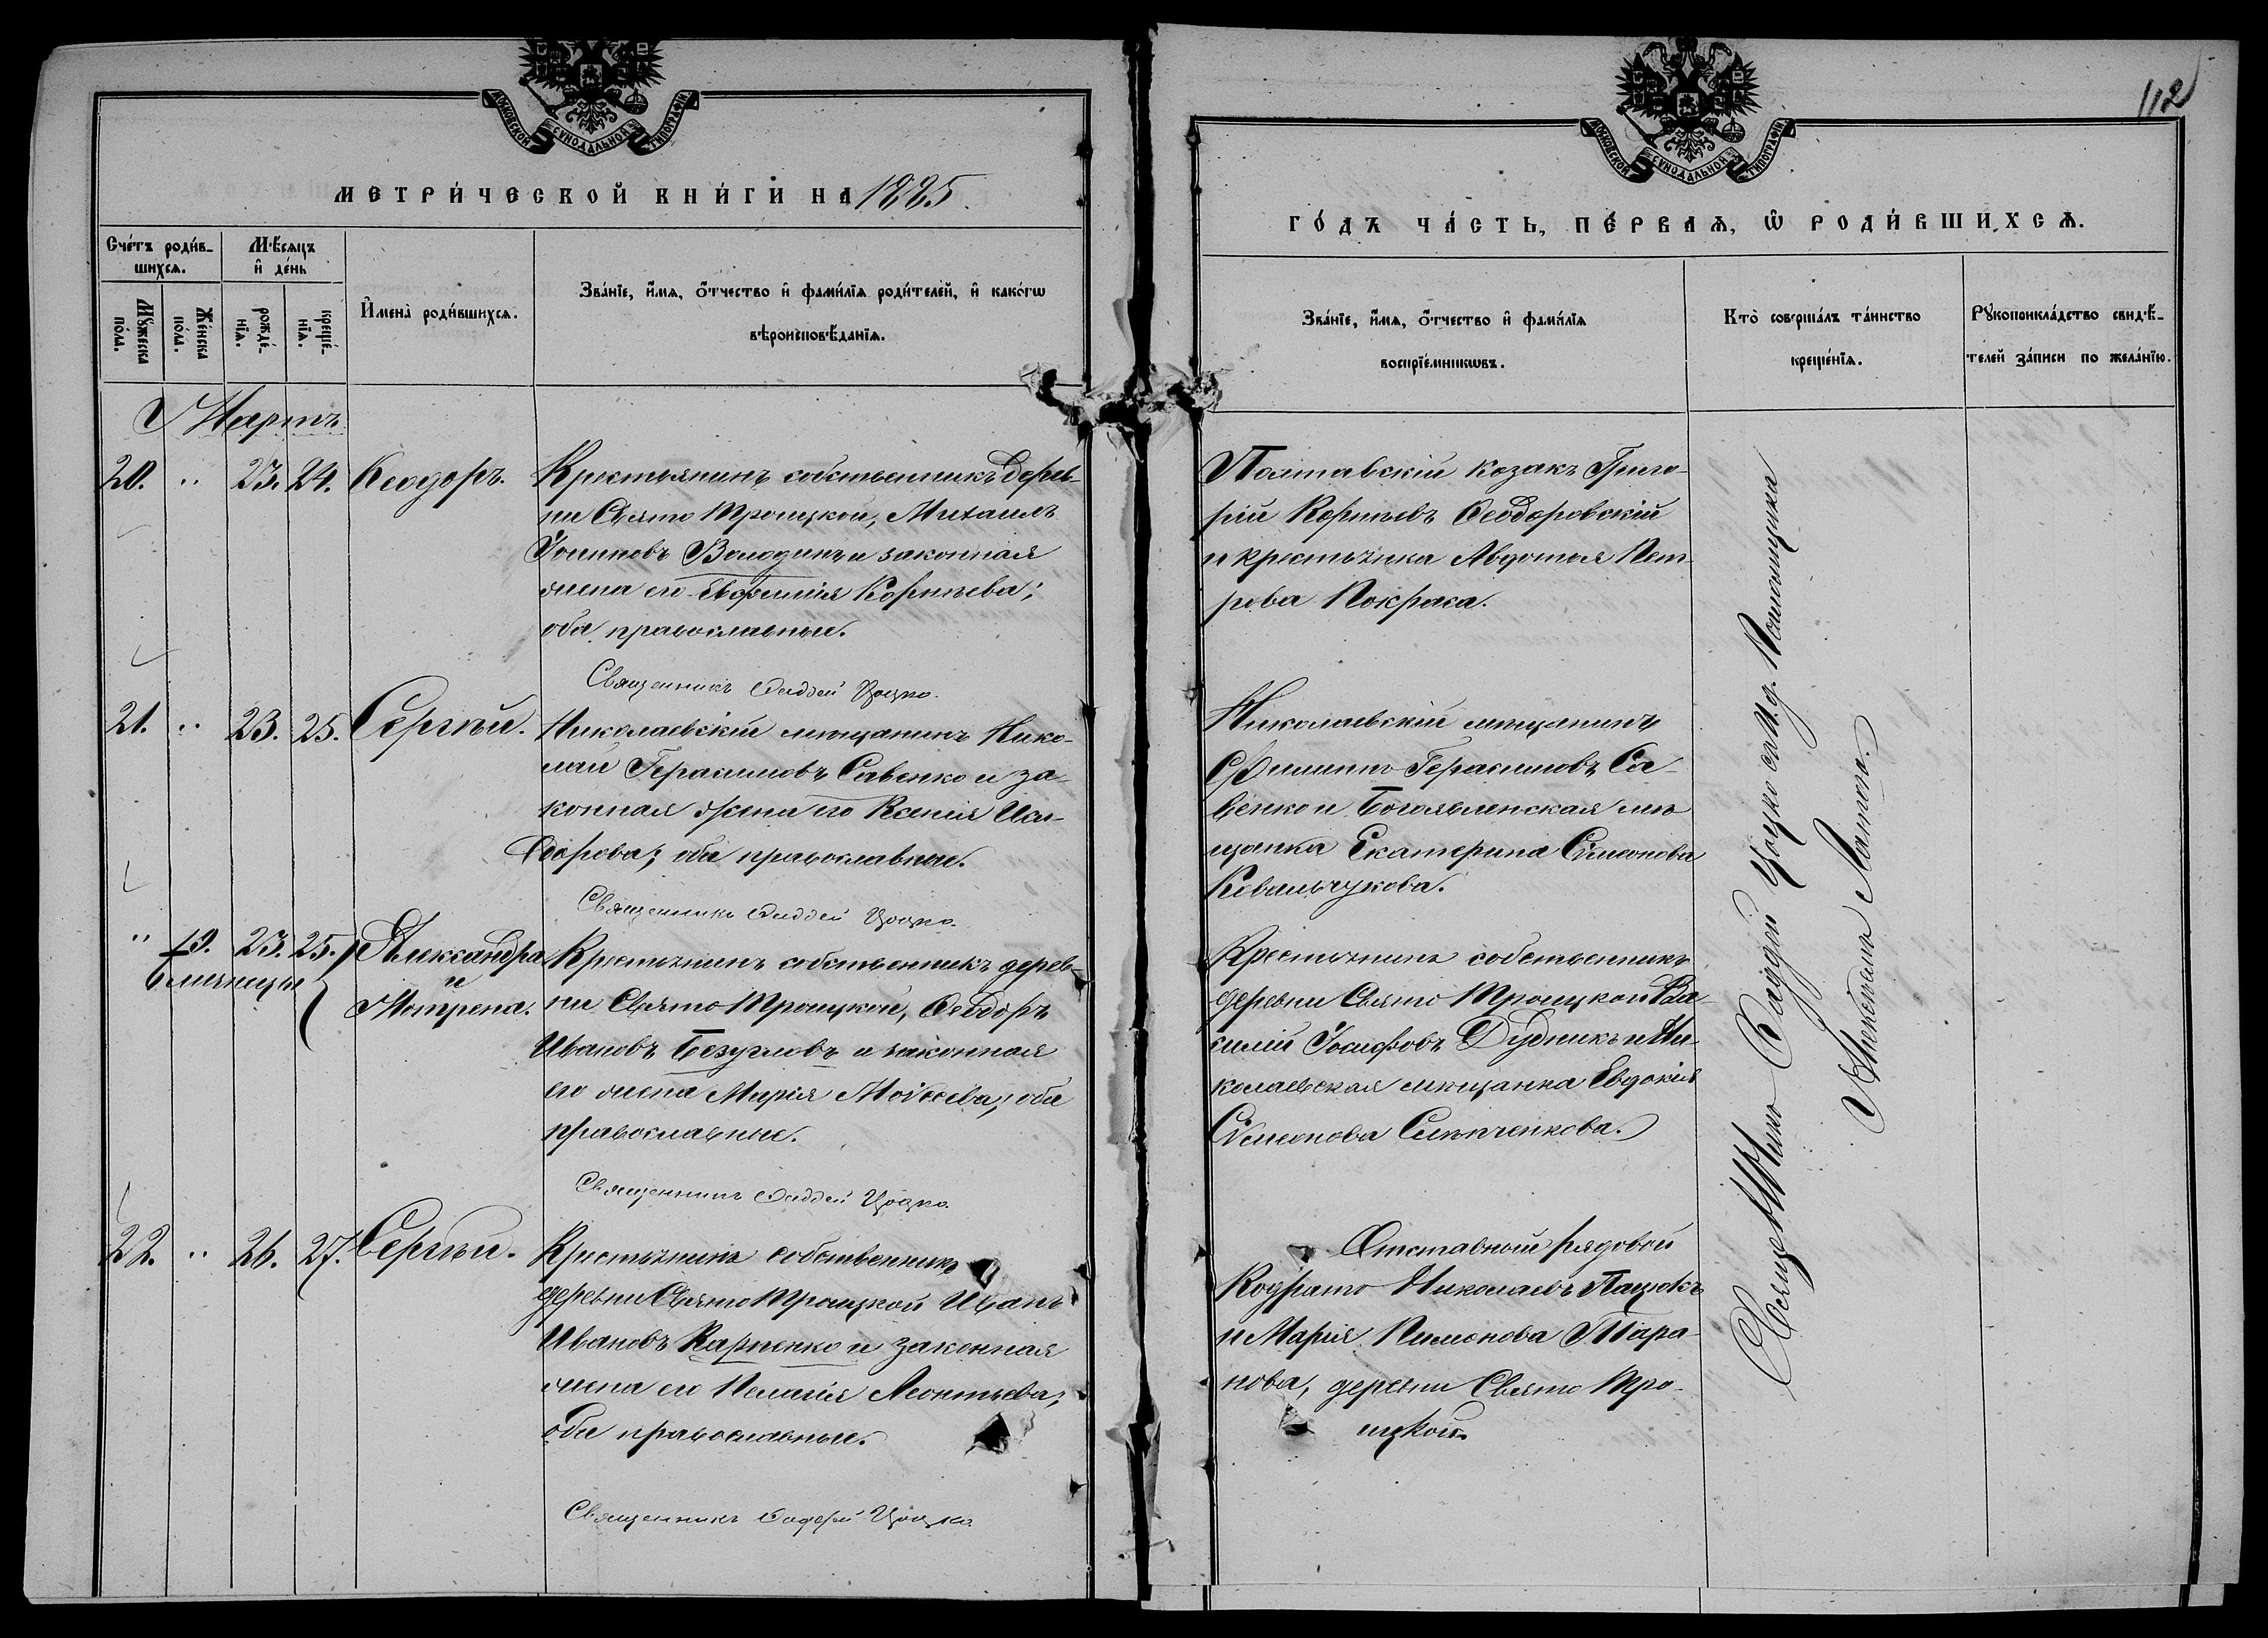 МОСКОВСКОЙ СѴНОДАЛЬНОЙ ТИПОГРАФІИ
МЕТРИ́ЧЕСКОЙ КНИ́ГИ НА 1885
Сче́тъ роди́в-
шихсѧ.
Мѣ́сѧцъ
и҆ де́нь
Мꙋ́жеска
по́ла.
Же́нска
по́ла.
рожде́-
нїѧ.
креще́-
нїѧ.
И҆мена̀ роди́вшихсѧ.
Зва́нїе, и҆́мѧ, о҆́тчество и҆ фами́лїѧ роди́телей, и҆ како́гѡ
вѣроисповѣ́данїѧ.
Мартъ
20. " 23. 24. Ѳеодоръ.
Крестьянинъ собственникъ дерев-
ни Свято Троицкой, Михаилъ
Іоиновъ Володинъ и законная
жена его Евфимія Корнѣева;
оба православные.
Священникъ Ѳаддей Цоцко.
21. " 23. 25. Сергѣй.
Николаевскій мѣщанинъ Нико-
лай Герасимовъ Савенко и за-
конная жена его Ксенія Иси-
дорова; оба православные.
Священникъ Ѳаддей Цоцко.
" 19. 23. 25. Александра
близнецы и
Мотрена.
Крестьянинъ собственникъ дерев-
ни Свято Троицкой, Ѳеодоръ
Ивановъ Безугловъ и законная
его жена Марія Моѵсеева; оба
православные.
Священникъ Ѳаддей Цоцко.
22. " 26. 27. Сергѣй.
Крестьянинъ собственникъ
деревни Свято Троицкой Иванъ
Ивановъ Карпенко и законная
жена его Пелагія Леонтьева;
оба православные.
Священникъ Ѳаддей Цоцко.
112
МОСКОВСКОЙ СѴНОДАЛЬНОЙ ТИПОГРАФІИ
ГО́ДЪ ЧА́СТЬ, ПЕ́РВАѦ, Ѡ҆ РОДИ́ВШИХСѦ.
Зва́нїе, и҆́мѧ, о҆́тчество и҆ фами́лїѧ
воспрїе́мникѡвъ.
Кто̀ соверша́лъ та́инство
креще́нїѧ.
Рꙋкоприкла́дство свидѣ́-
телей за́писи по жела́нїю.
Полтавскій козакъ Григо-
рій Корнѣевъ Ѳеодоровскій
и крестьянка Авдотья Пет-
рова Покраса.
Николаевскій мѣщанинъ
Филиппъ Герасимовъ Са-
венко и Богоявленская мѣ
щанка Екатерина Симеонова
Ковальчукова.
Крестьянинъ собственникъ
деревни Свято Троицкой Ва-
силій Іосифовъ Дудникъ и Ни-
колаевская мѣщанка Евдокія
Симеонова Слѣпченкова.
Отставной рядовой
Кодратъ Николаевъ Пацюкъ
и Марія Пимонова Тара-
нова, деревни Свято Тро-
ицкой.
Ѳаддей Цоцко съ И. д. Псаломщика